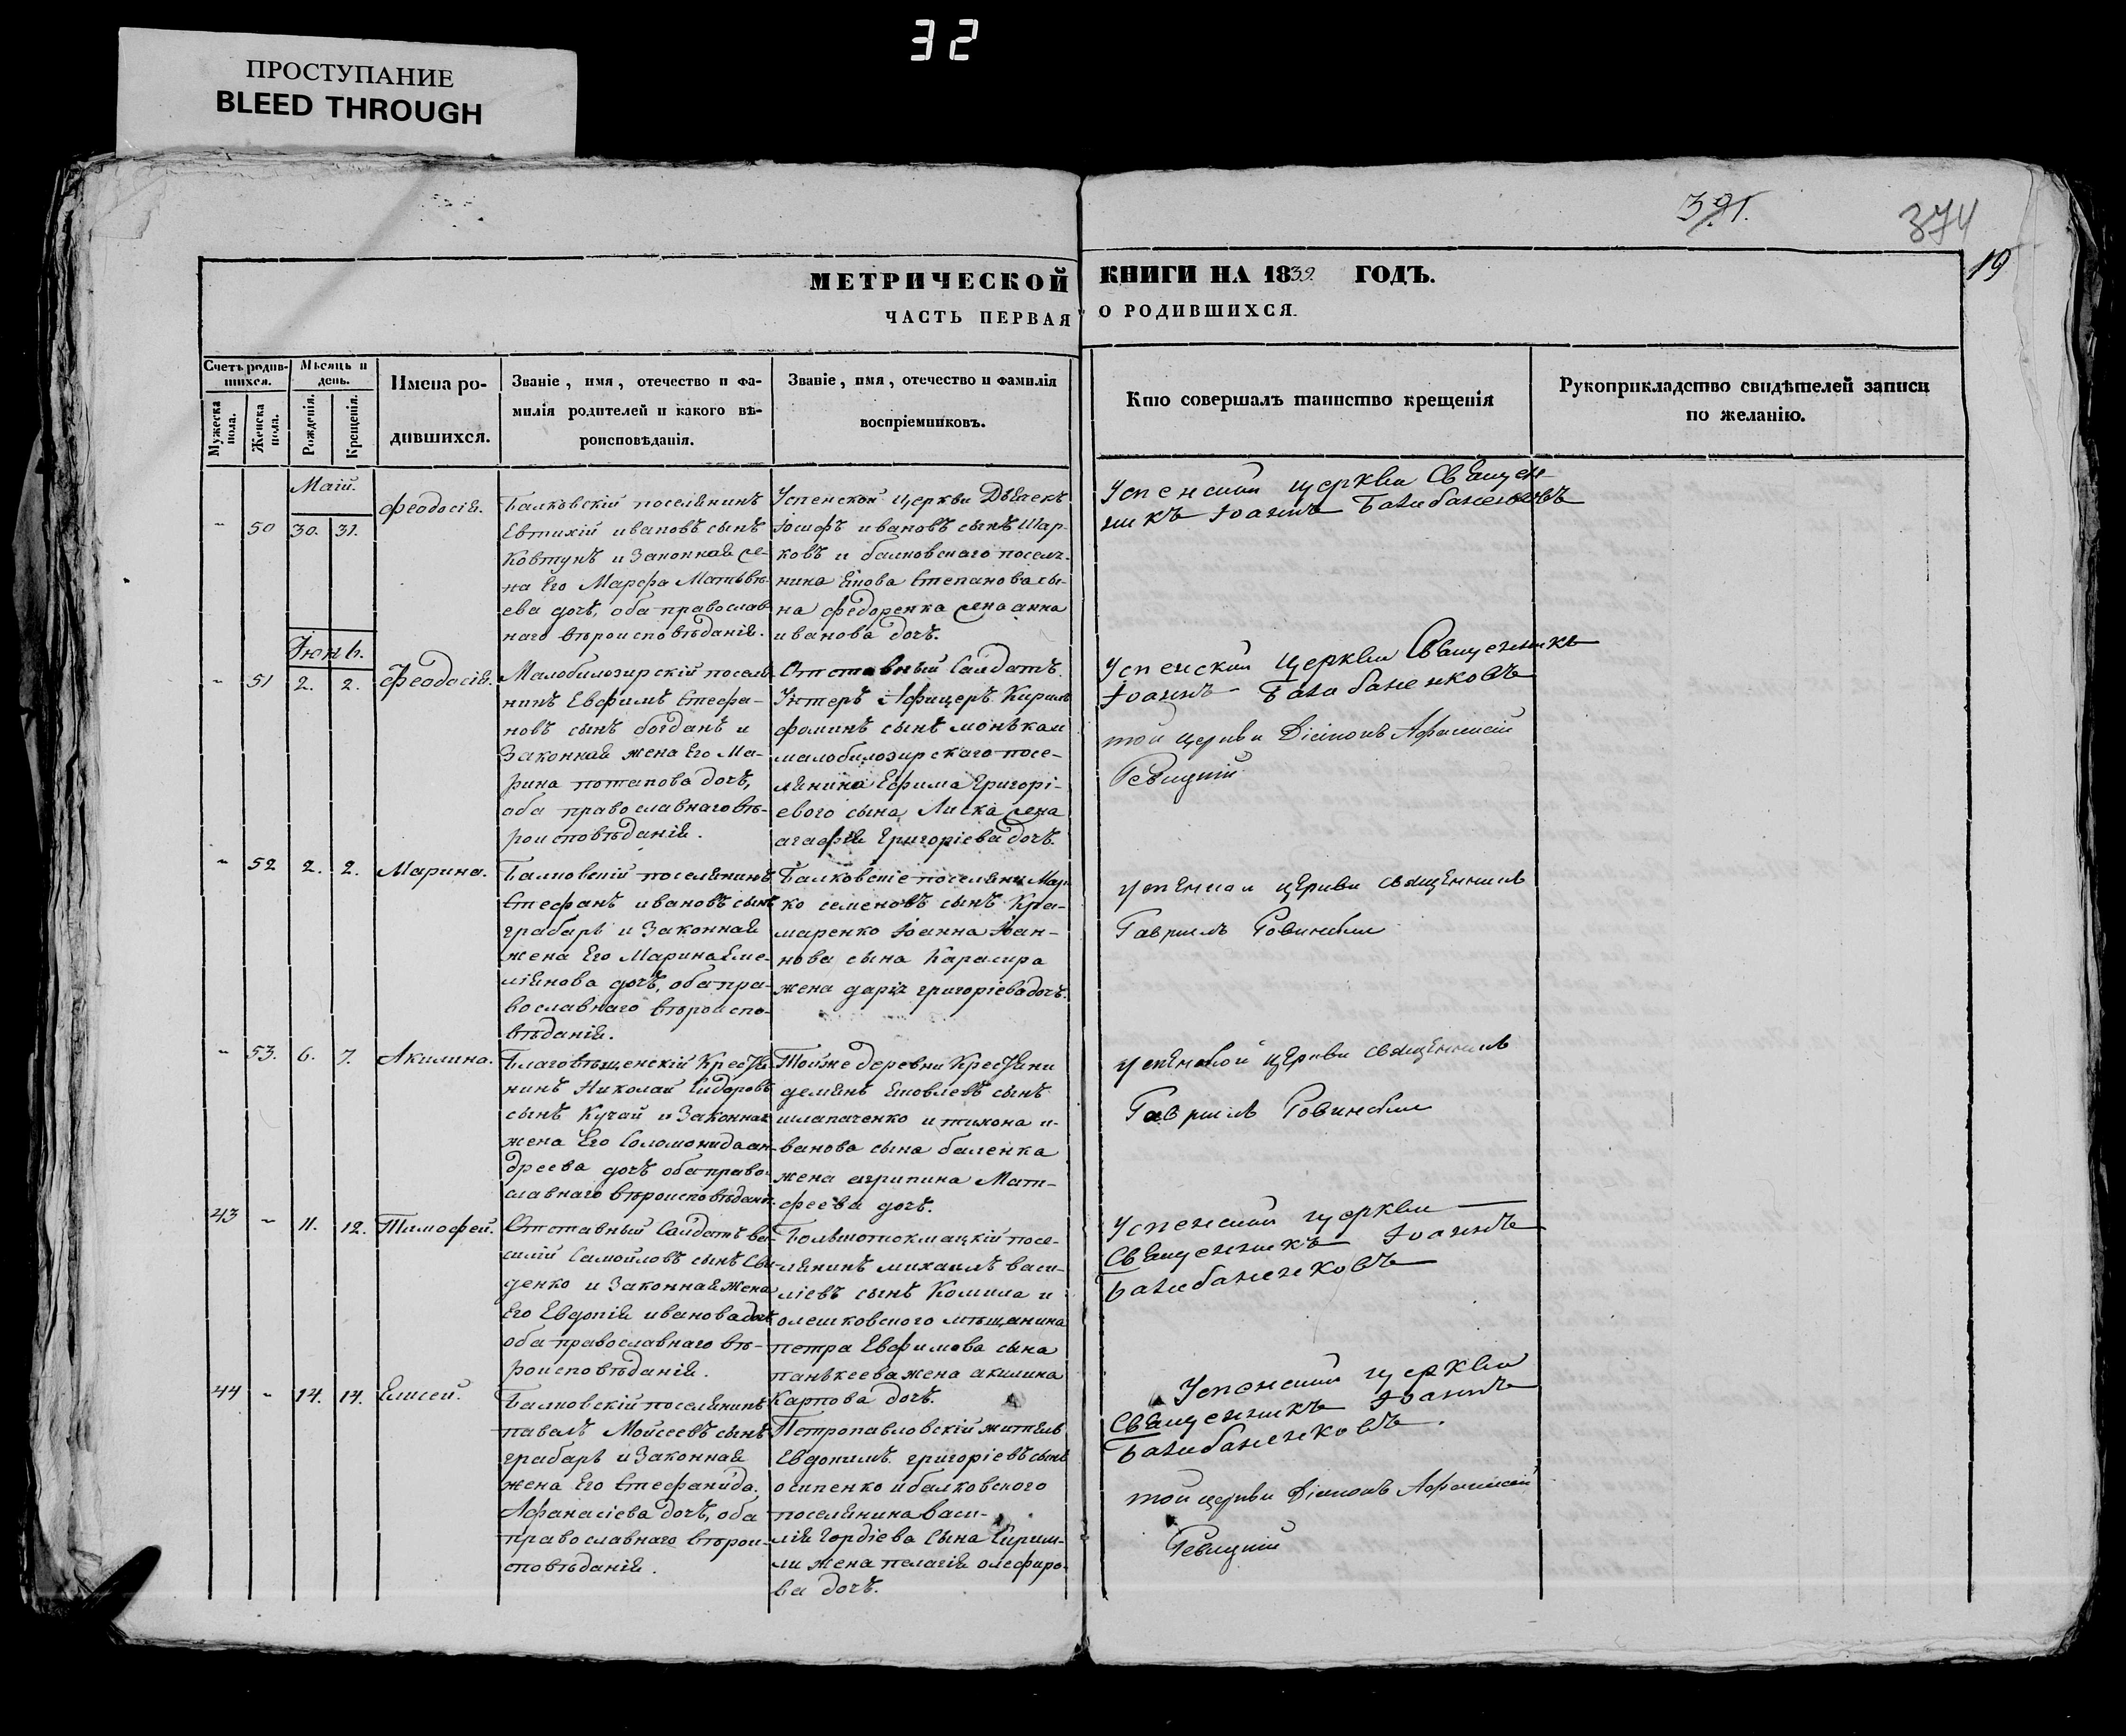 32
ПРОСТУПАНИЕ
BLEED THROUGH
391.
374
19
МЕТРИЧЕСКОЙ КНИГИ НА 1839. ГОДЪ.
ЧАСТЬ ПЕРВАЯ О РОДИВШИХСЯ.
Счетъ родив-
шихся.
Мужеска пола.
Женска пола.
Мѣсяцъ и
день.
Рожденія.
Крещенія.
Имена ро-
дившихся.
Званіе, имя, отечество и фа-
милія родителей и какого вѣ-
роисповѣданія.
Званіе, имя, отечество и фамилія
воспріемниковъ.
Кто совершалъ таинство крещенія
Рукоприкладство свидѣтелей записи
по желанію.
Маій.
- 50 30. 31.
Феодосія.
Балковскій поселянинъ
Евтихій ивановъ сынъ
Ковтунъ и Законная же-
на Его Марфа Матѳѣ-
ева дочь, оба православ-
наго вѣроисповѣданія.
Успенской церкви Дьячекъ
Іосифъ ивановъ сынъ Шар-
ковъ и балковскаго поселя-
нина Якова Степанова сы-
на федоренка жена анна
иванова дочь.
Успенской церкви Священ-
никъ Іоаннъ Балабаненковъ
Іюнь.
- 51 2. 2.
Феодосія.
Малобилозирскій поселя-
нинъ Евфимъ Стефа-
новъ сынъ богданъ и
Законная жена Его Ма-
рина потапова дочь,
оба православнаго вѣ-
роисповѣданія.
Отставный Салдатъ
Унтеръ Афицеръ Кирилъ
фоминъ сынъ монька и
малобилозирскаго посе-
лянина Ефима Григорі-
евого сына Лиска жена
агафія Григоріева дочь.
Успенской церкви Священникъ
Іоаннъ Балабаненковъ
той церкви Діаконъ Афанасій
Ревицкій
- 52 2. 2.
Марина.
Балковскій поселянинъ
Стефанъ ивановъ сынъ
грабарь и Законная
жена Его Марина Еме-
ліянова дочь, оба пра-
вославнаго вѣроиспо-
вѣданія.
Балковскіе поселяни Мар-
ко семеновъ сынъ Кра-
маренко Іоанна Іоан-
нова сына
жена дарія григоріева дочь.
Успенской церкви священникъ
Гавриилъ Ровинскій
- 53. 6. 7.
Акилина.
Благовѣщенскій Крестья-
нинъ Николай Сидоровъ
сынъ Кучай и Законная
жена Его Соломонида ан-
дреева дочь оба право-
славнаго вѣроисповѣданія.
Тойже деревни Крестьяни
демянъ Яковлевъ сынъ
шлапаченко и тихона и-
ванова сына баленка
жена агрипина Мат-
феева дочь.
Успенской церкви священникъ
Гавриилъ Ровинскій
43 - 11. 12.
Тимофей.
Отставный Салдатъ ва-
силій Самойловъ сынъ Сви-
денко и Законная жена
Его Евдокія иванова дочь
оба православнаго вѣ-
роисповѣданія.
Большотокмацкій посе-
лянинъ михаилъ васи-
ліевъ сынъ Комиса и
олешковского мѣщанина
петра Евфимова сына
панькеева жена акилина
Карпова дочь.
Успенской церкви
Священникъ Іоаннъ
Балабаненковъ
44 - 14. 14.
Елисей.
Балковскій поселянинъ
павелъ Мойсеевъ сынъ
грабарь и Законная
жена Его Стефанида
Афанасіева дочь, оба
православнаго вѣрои-
сповѣданія.
Петропавловскій житель
Евдокимъ григоріевъ сынъ
осипенко и балковского
поселянина васи-
лія Гордіева Сына
жена пелагія олефиро-
ва дочь.
Успенской церкви
Священникъ Іоаннъ
Балабаненковъ.
той церкви Діаконъ Афанасій
Ревицкій